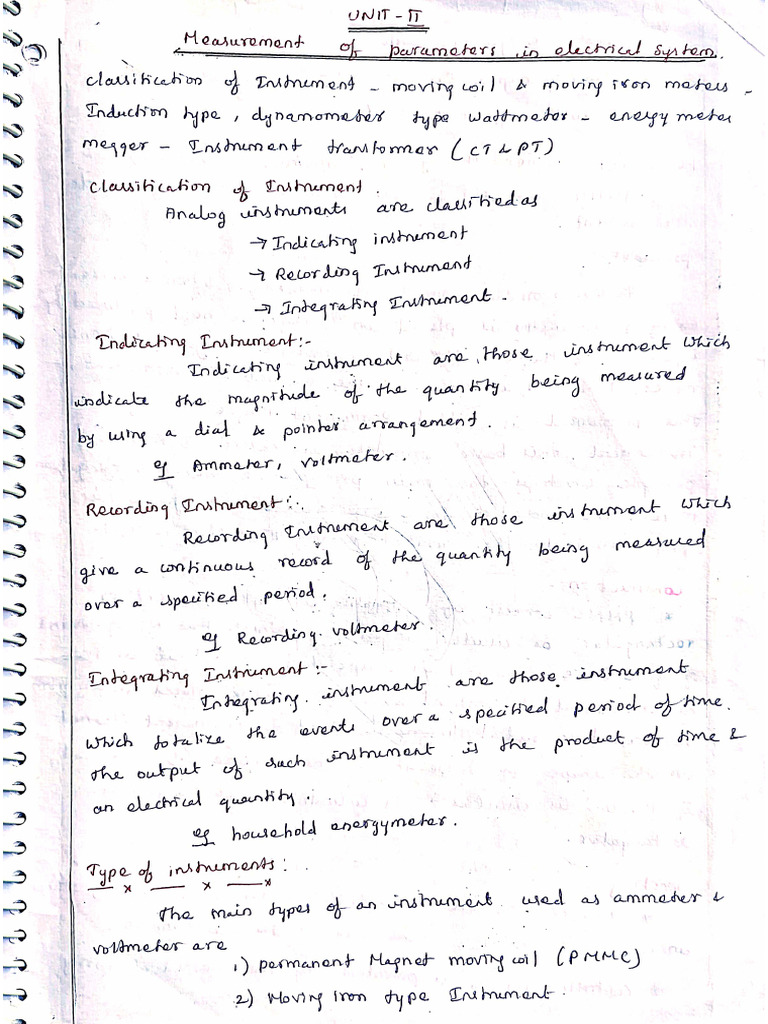 UNIT - II
Measurement of parameters in electrical system.
Classification of Instrument - moving coil & moving iron meters -
Induction type, dynamometer type wattmeter - energy meter
megger - Instrument transformer (CT & PT)
Classification of Instrument.
Analog instruments are classified as
→ Indicating instrument
→ Recording Instrument
→ Integrating Instrument.
Indicating Instrument:-
Indicating instrument are those instrument which
indicate the magnitude of the quantity being measured
by using a dial & pointer arrangement.
eg Ammeter, voltmeter.
Recording Instrument:-
Recording Instrument are those instrument which
give a continuous record of the quantity being measured
over a specified period.
eg Recording voltmeter.
Integrating Instrument:-
Integrating instrument are those instrument
which totalize the events over a specified period of time.
The output of such instrument is the product of time &
an electrical quantity.
eg household energymeter.
Type of instruments:
The main types of an instrument used as ammeter &
voltmeter are
1) permanent Magnet moving coil (PMMC)
2) Moving iron type Instrument.